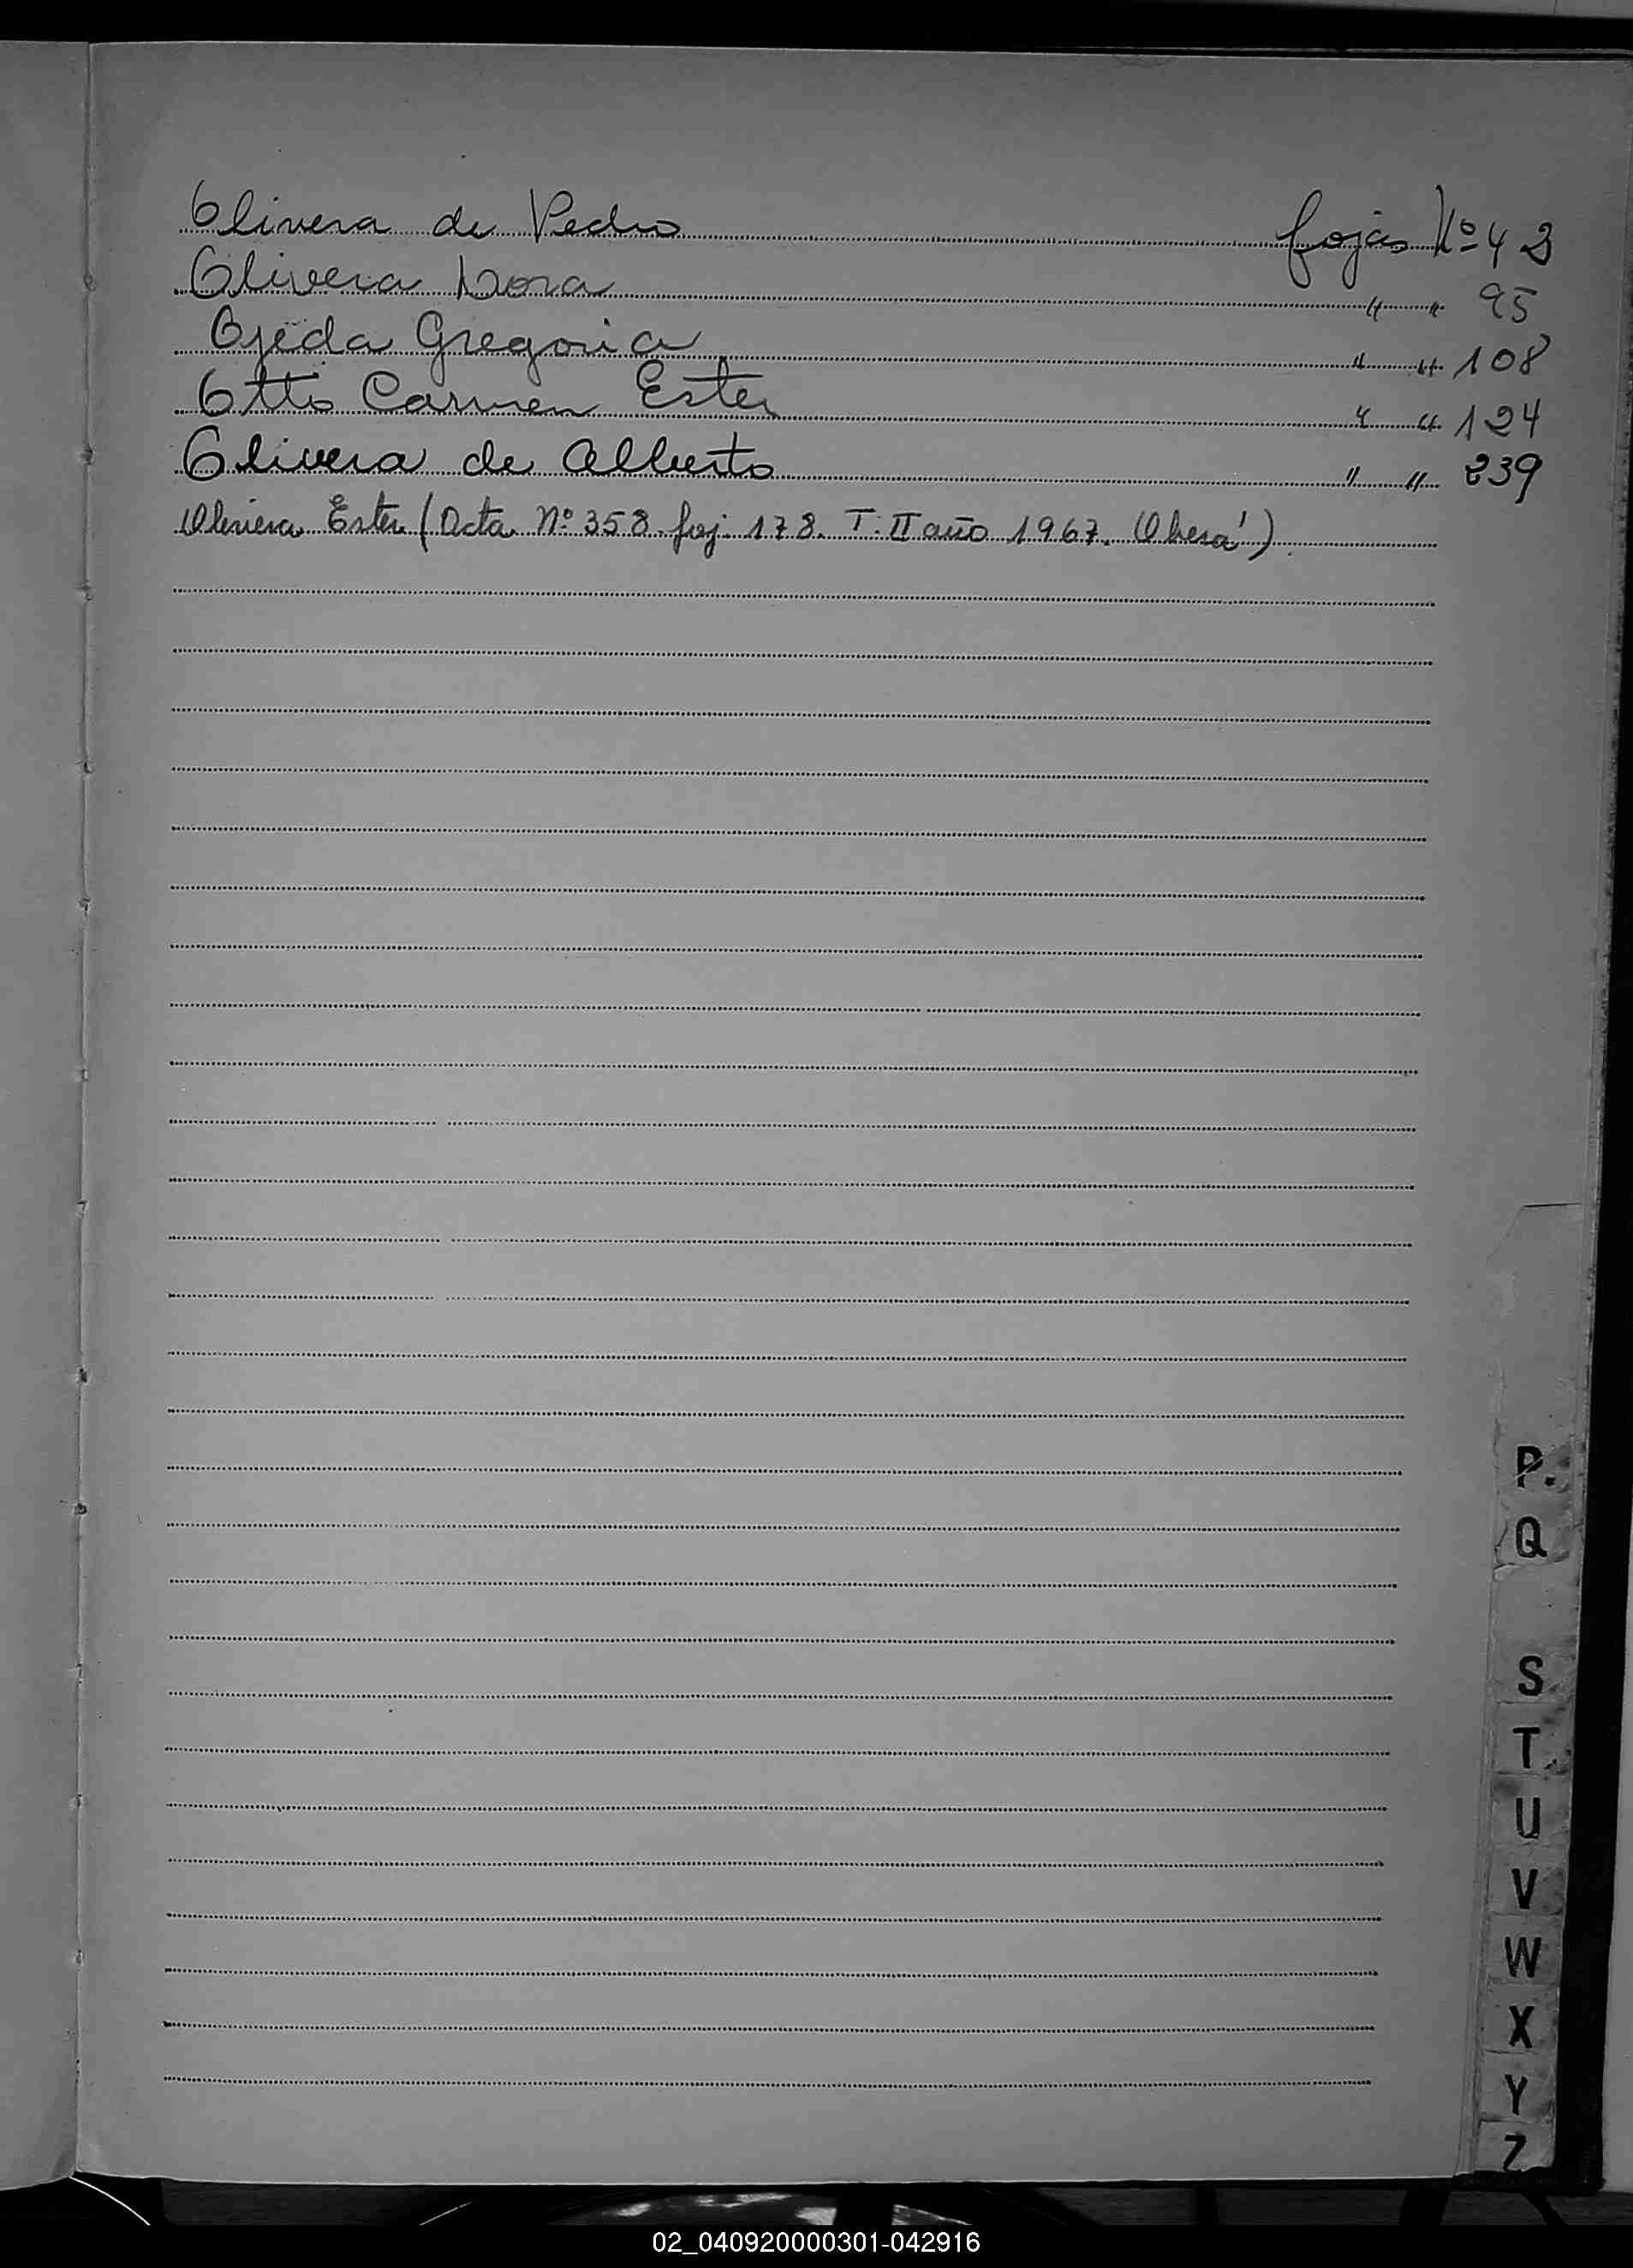 Olivera de Pedro fojas Nº 42
Olivera Dora " " 95
Ojeda Gregoria " " 108
Otto Carmen Ester " " 124
Olivera de Alberto " " 239
Oliviera Ester (Acta Nº 358 foj. 178. T. II año 1967. Oberá)
P.
Q
S
T
U
V
W
X
Y
Z
02_040920000301-042916